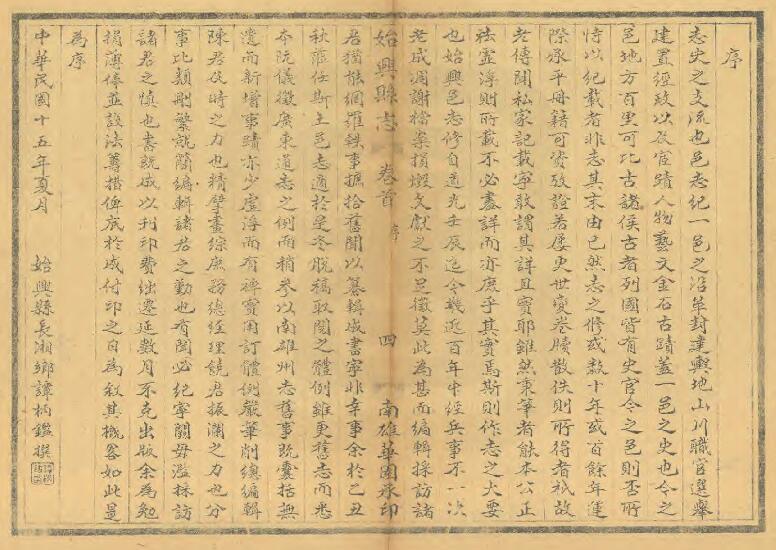 序
志史之支流也邑志紀一邑之沿革封建輿地山川職官選舉
建置經政以及宦蹟人物藝文金石古蹟蓋一邑之史也今之
邑地方百里可比古諸侯古者列國皆有史官今之邑則否所
恃以紀載者非志其末由已然志之修或數十年或百餘年運
際承平冊籍可資攷證若屢更世變卷牘散佚則所得者祇故
老傳聞私家記載寧敢謂其詳且實耶雖然秉筆者能本公正
祛靈浮則所載不必盡詳而亦庶乎其實焉斯則作志之大要
也始興邑志修自道光壬辰迄今幾近百年中經兵事不一次
老成凋謝檔案損燬文獻之不足徵莫此為甚而編輯採訪諸
始興縣志 卷首 序 四 南雄華國承印
君猶能網羅軼事摭拾舊聞以纂輯成書寧非幸事余於乙丑
秋蒞任斯土邑志適於是冬脫稿取閱之體例雖更舊志而悉
本阮儀徵廣東通志之例而稍參以南雄州志舊事既囊括無
遺而新增事蹟亦少虛浮而有裨實用訂體例嚴筆削總編輯
陳君及時之力也精擘畫綜庶務總經理饒君振瀾之力也分
事比類刪繁就簡編輯諸君之勤也有聞必紀寧闕毋濫採訪
諸君之慎也書既成以刊印費絀遷延數月不克出版余為勉
捐薄俸並設法籌措俾底於成付印之日為敘其概畧如此是
為序
中華民國十五年夏月 始興縣長湘鄉譚柄鑑撰